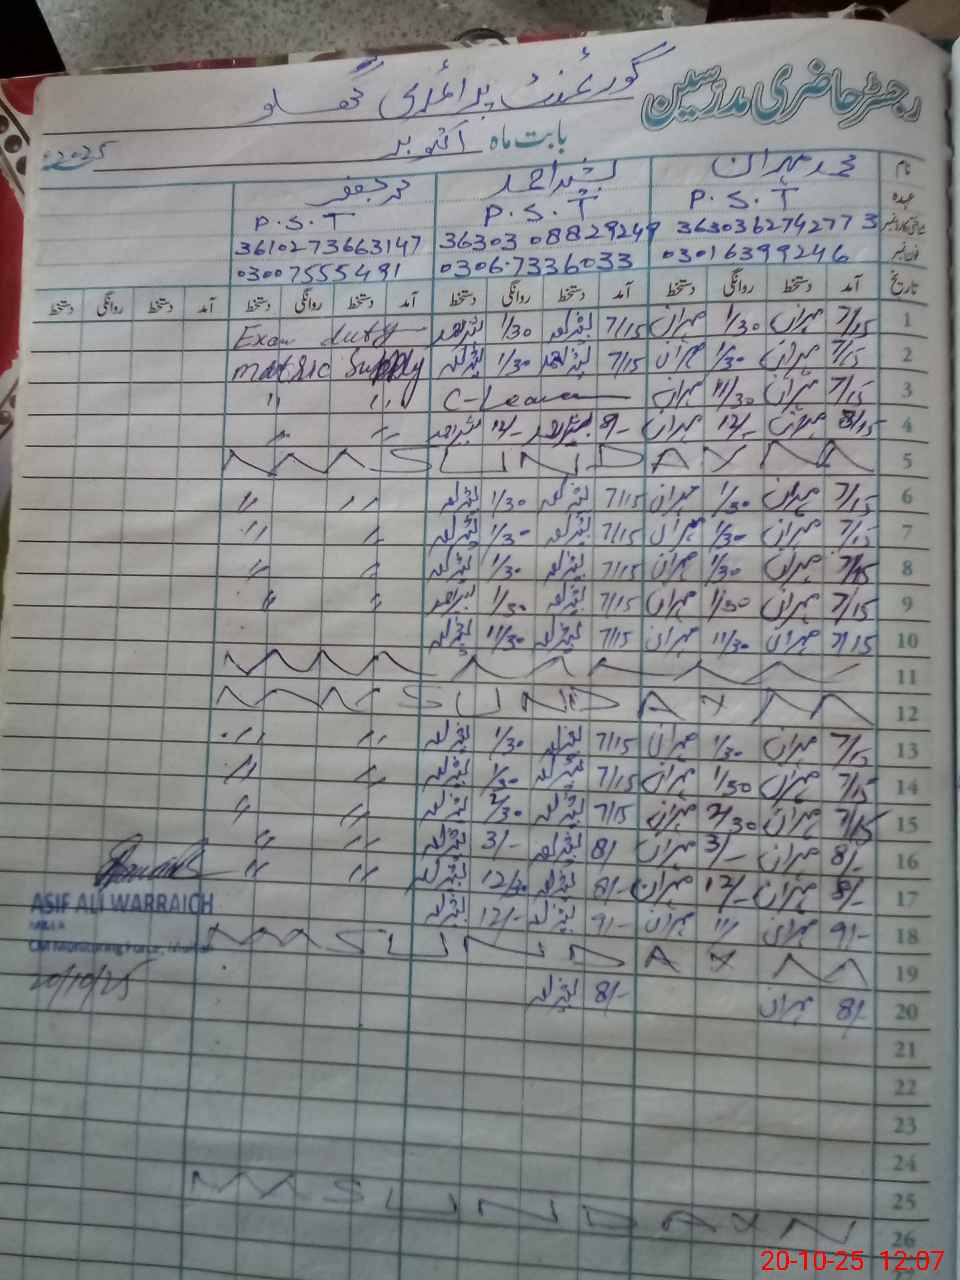 رجسٹر حاضری مدرسین
گورنمنٹ پرائمری
بابت ماہ اکتوبر 2025
نام محمد مہران بشیر احمد محمد جعفر
عہدہ P.S.T P.S.T P.S.T
3630362742773 36303 08829249 3610273663147
فون نمبر 03016399246 03067336033 03007555491
تاریخ آمد دستخط روانگی دستخط آمد دستخط روانگی دستخط آمد دستخط روانگی دستخط آمد دستخط روانگی دستخط
1 7/15 مہران 1/30 مہران 7/15 بشیر احمد 1/30 بشیر احمد Exam duty
2 7/15 مہران 1/30 مہران 7/15 بشیر احمد 1/30 بشیر احمد matric Supply
3 7/15 مہران 11/30 مہران C-Leave " "
4 8/15 مہران 12/- مہران 8/- بشیر احمد 12/- بشیر احمد " "
5 SUNDAY
6 7/15 مہران 1/30 مہران 7/15 بشیر احمد 1/30 بشیر احمد " "
7 7/15 مہران 1/30 مہران 7/15 بشیر احمد 1/30 بشیر احمد " "
8 7/15 مہران 1/30 مہران 7/15 بشیر احمد 1/30 بشیر احمد " "
9 7/15 مہران 1/30 مہران 7/15 بشیر احمد 1/30 بشیر احمد " "
10 7/15 مہران 11/30 مہران 7/15 بشیر احمد 11/30 بشیر احمد
11
12 SUNDAY
13 7/15 مہران 1/30 مہران 7/15 بشیر احمد 1/30 بشیر احمد " "
14 7/15 مہران 1/30 مہران 7/15 بشیر احمد 1/30 بشیر احمد " "
15 7/15 مہران 2/30 مہران 7/15 بشیر احمد 2/30 بشیر احمد " "
16 8/- مہران 3/- مہران 8/ بشیر احمد 3/- بشیر احمد " "
17 8/- مہران 12/- مہران 8/- بشیر احمد 12/30 بشیر احمد " "
18 9/- مہران مہران 9/- بشیر احمد 12/- بشیر احمد
19 SUNDAY
20 8/- مہران 8/- بشیر احمد
21
22
23
24
25
26 SUNDAY
ASIF ALI WARRAICH
20/10/25
20-10-25 12:07